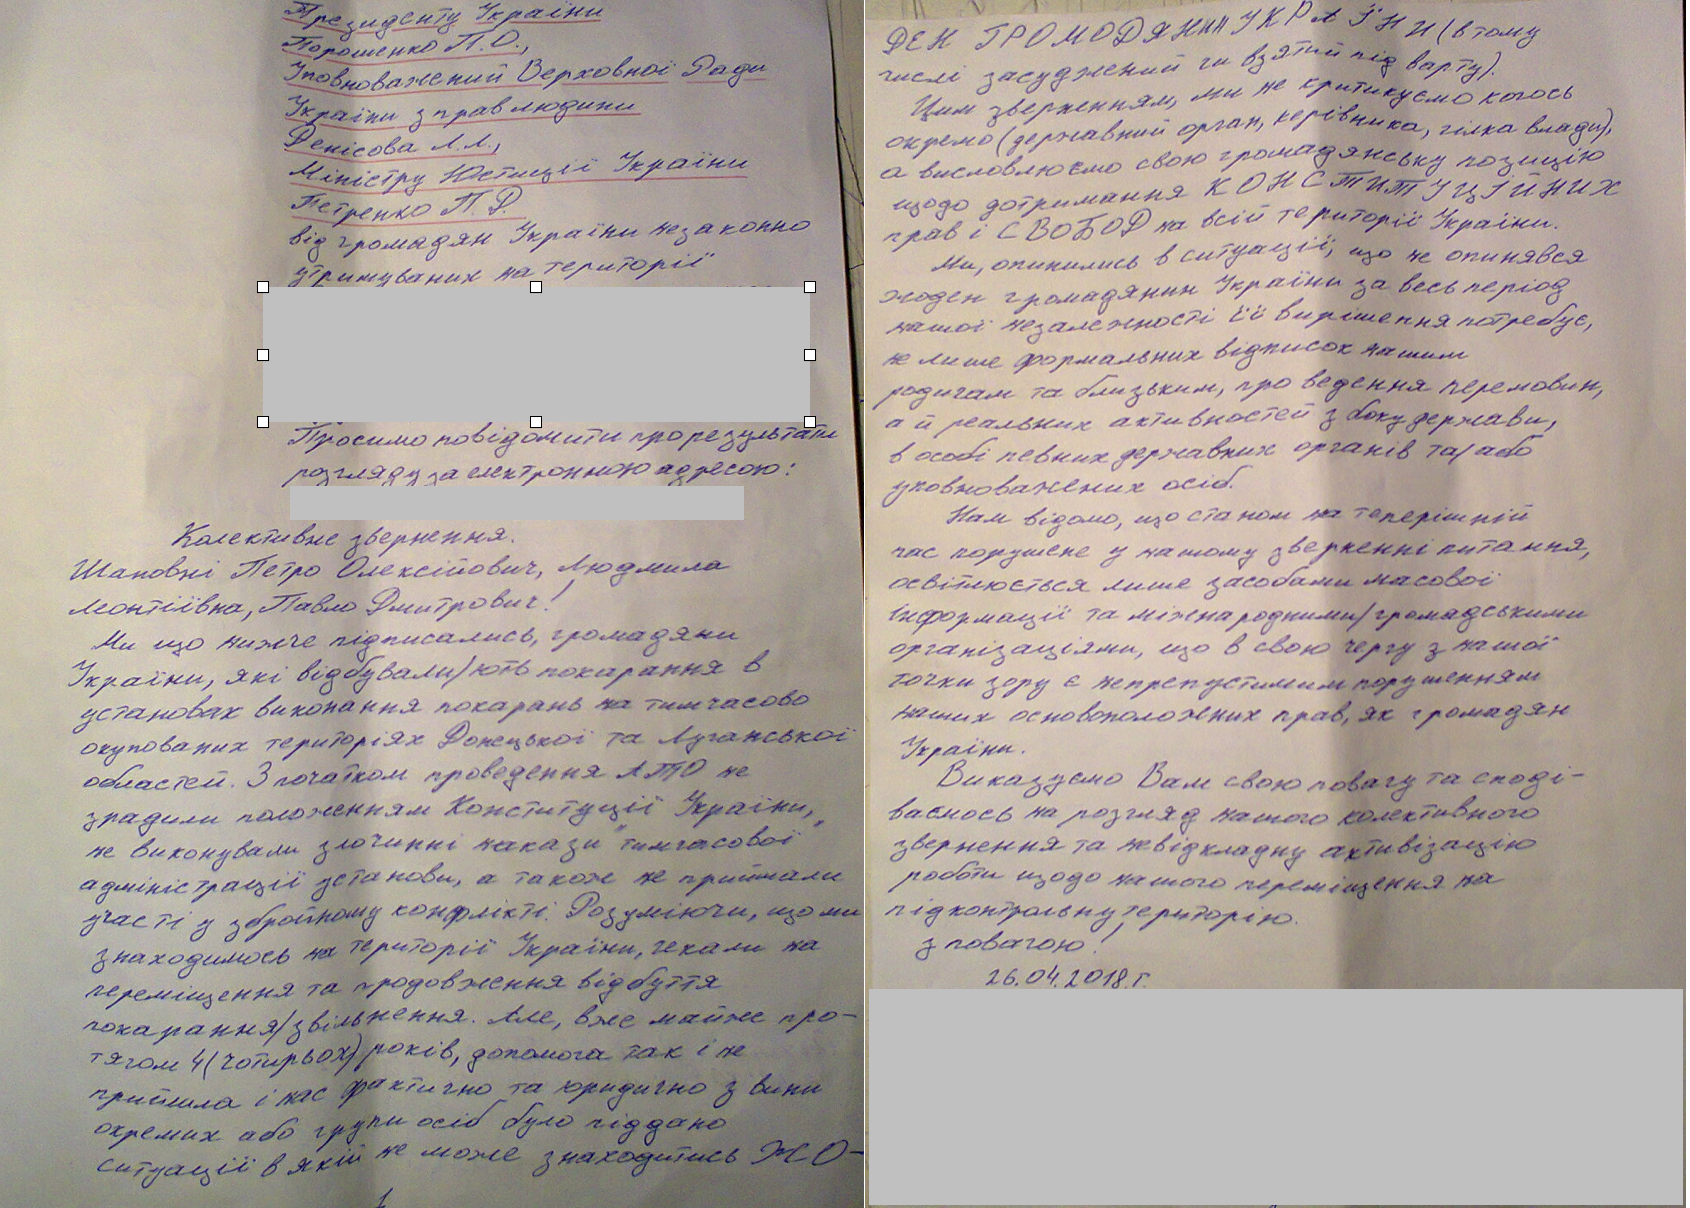 Президенту України
Порошенко П.О.,
Уповноважений Верховної Ради
України з прав людини
Денісова Л.Л.,
Міністру Юстиції України
Петренко П.Д.
від громадян України незаконно
утримуваних на території
Просимо повідомити про результати
розгляду за електронною адресою:
Колективне звернення.
Шановні Петро Олексійович, Людмила
Леонтіївна, Павло Дмитрович!
Ми що нижче підписались, громадяни
України, які відбували/ють покарання в
установах виконання покарань на тимчасово
окупованих територіях Донецької та Луганської
областей. З початком проведення АТО не
зрадили положенням Конституції України,
не виконували злочинні накази "тимчасової"
адміністрації установи, а також не приймали
участі у збройному конфлікті. Розуміючи, що ми
знаходимось на території України, чекали на
переміщення та продовження відбуття
покарання/звільнення. Але, вже майже про-
тягом 4(чотирьох) років, допомога так і не
прийшла і нас фактично та юридично з вини
окремих або групи осіб було піддано
ситуації в якій не може знаходитись ЖО-
1
ДЕН ГРОМОДЯНИН УКРАЇНИ (в тому
числі засуджений чи взятий під варту).
Цим зверненням, ми не критикуємо когось
окремо (державний орган, керівника, гілка влади),
а висловлюємо свою громадянську позицію
щодо дотримання КОНСТИТУЦІЙНИХ
прав і СВОБОД на всій території України.
Ми, опинились в ситуації, що не опинявся
жоден громадянин України за весь період
нашої незалежності її вирішення потребує,
не лише формальних відписок нашим
родичам та близьким, проведення перемовин,
а й реальних активностей з боку держави,
в особі певних державних органів та/або
уповноважених осіб.
Нам відомо, що станом на теперішній
час порушене у нашому зверненні питання,
освітлюється лише засобами масової
інформації та міжнародними/громадськими
організаціями, що в свою чергу з нашої
точки зору є непрепустимим порушенням
наших основоположних прав, як громадян
України.
Виказуємо Вам свою повагу та споді-
ваємось на розгляд нашого колективного
звернення та невідкладну активізацію
роботи щодо нашого переміщення на
підконтрольну територію.
з повагою!
26.04.2018.г.